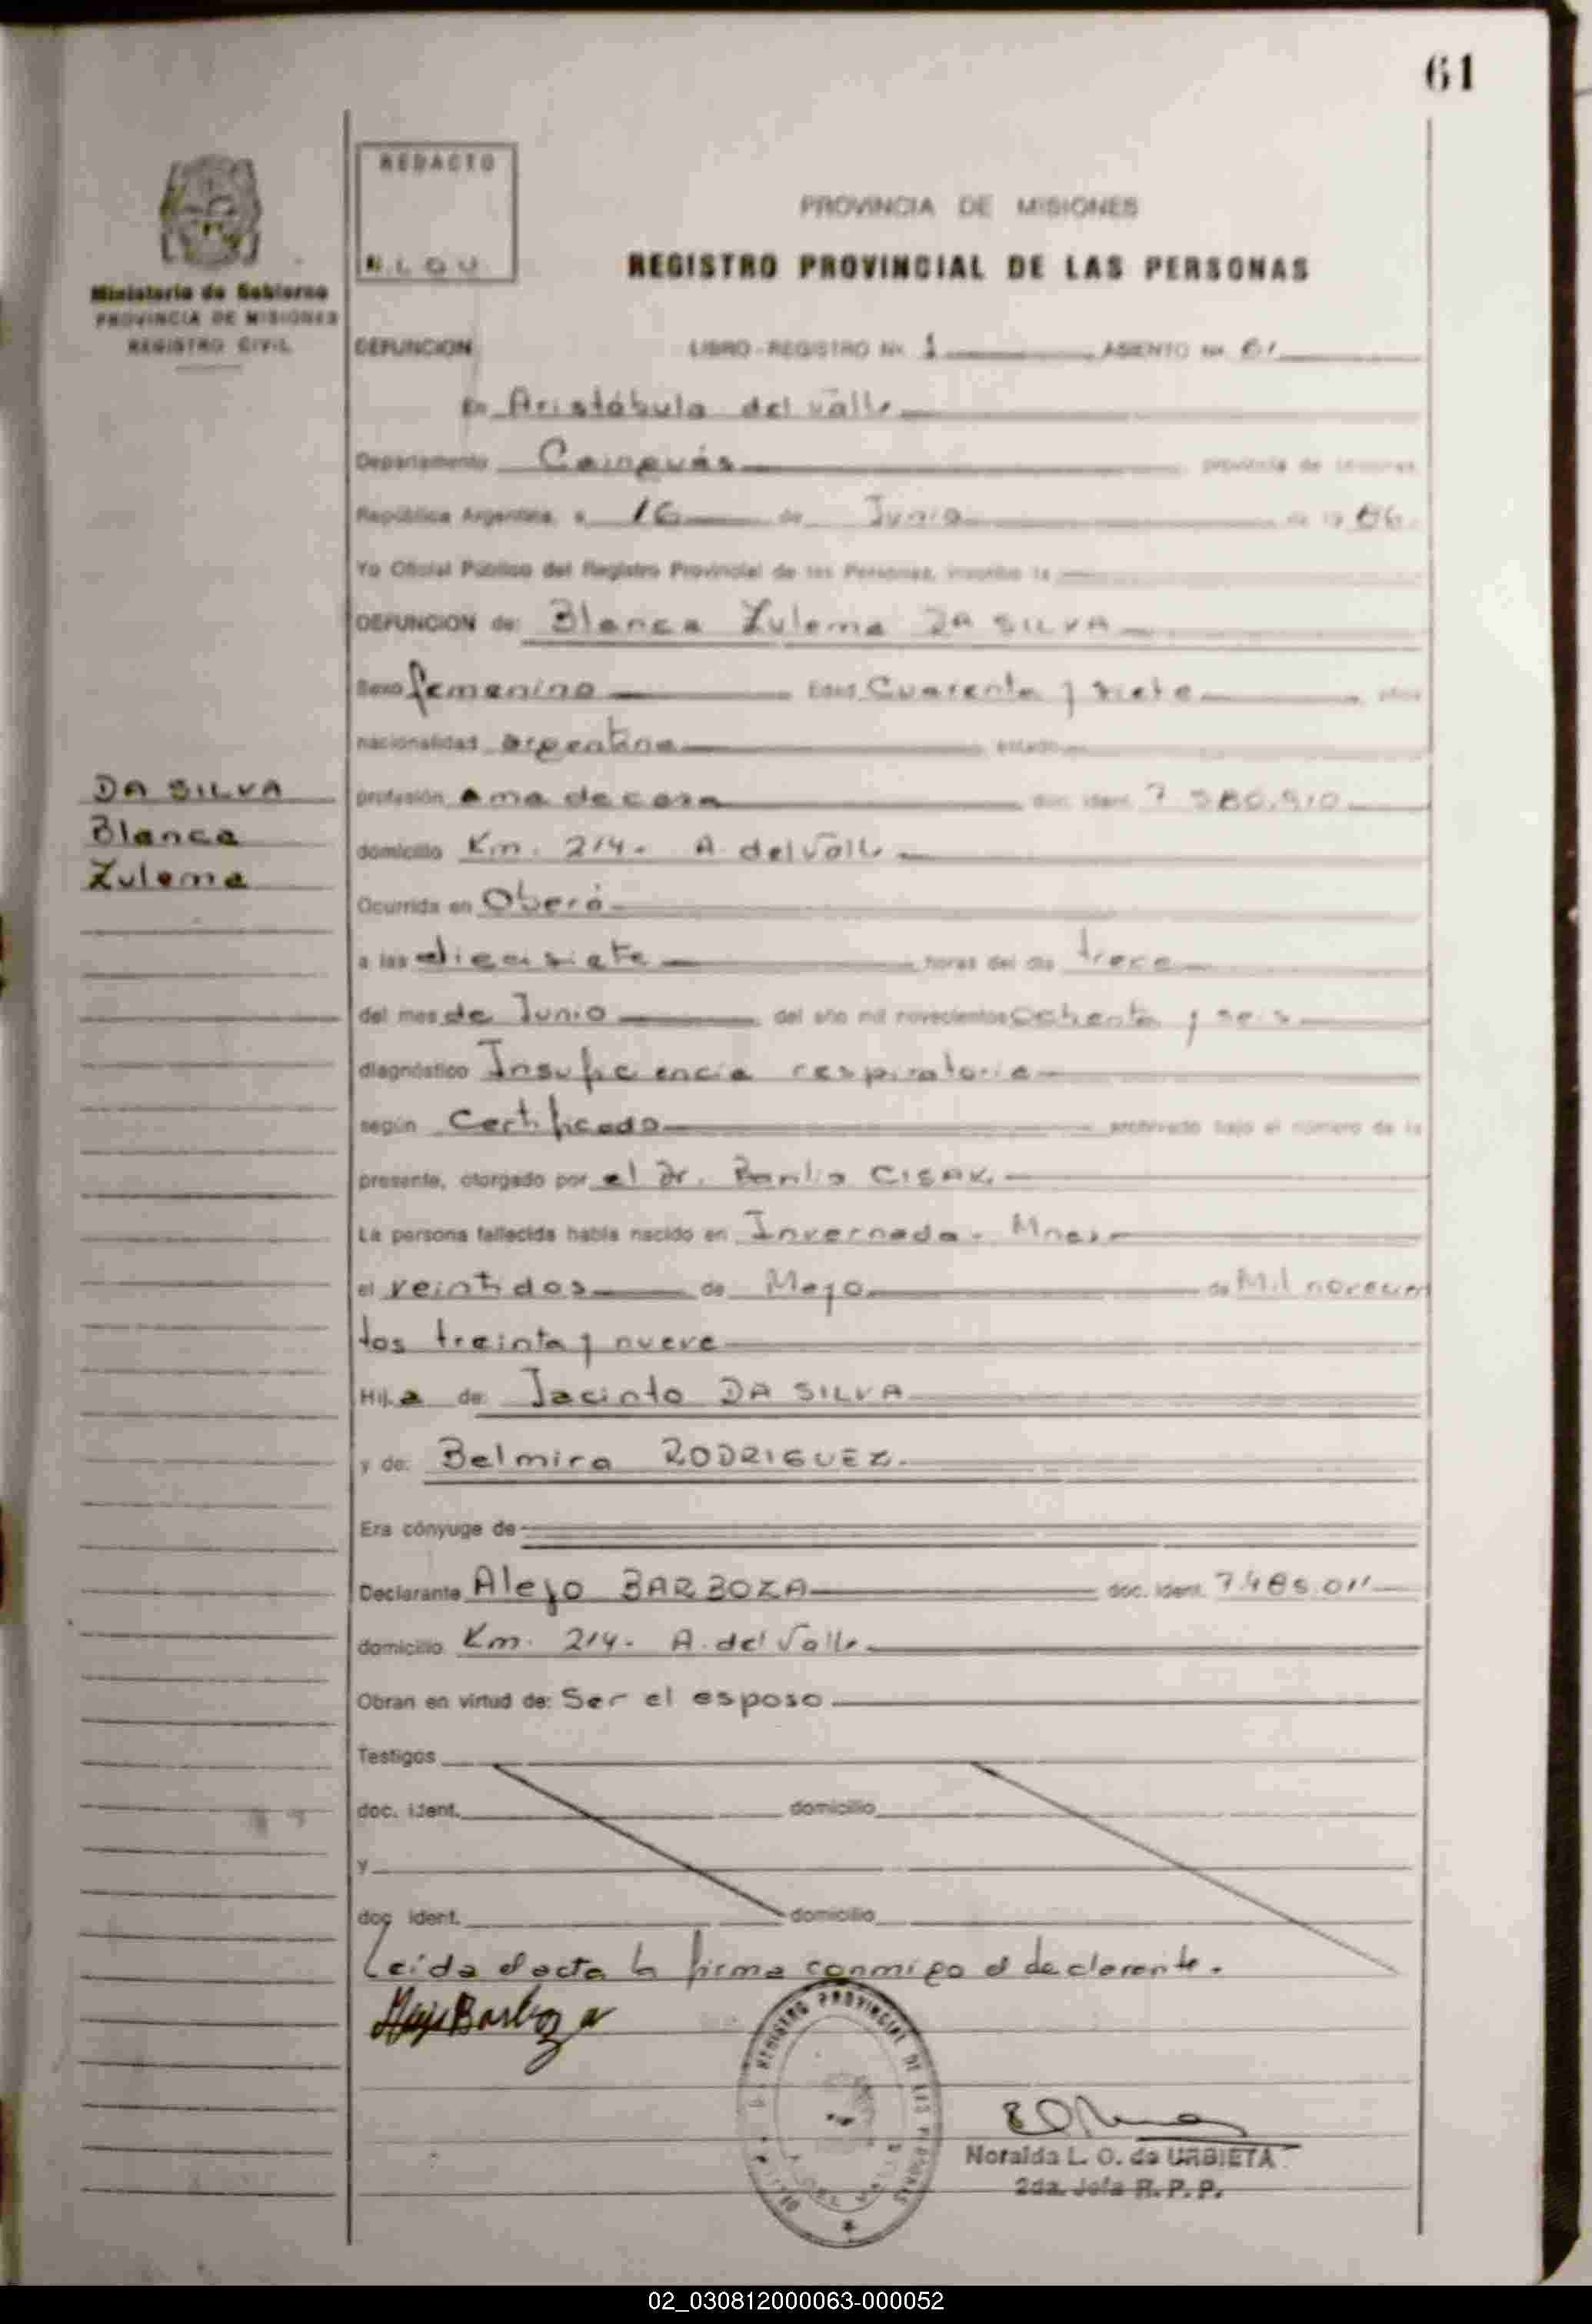 61
REDACTO
N. L. O. U.
PROVINCIA DE MISIONES
REGISTRO PROVINCIAL DE LAS PERSONAS
Ministerio de Gobierno
PROVINCIA DE MISIONES
REGISTRO CIVIL
DEFUNCION LIBRO-REGISTRO Nº. 1 ASIENTO Nº. 61
En Aristóbulo del Valle
Departamento Cainguás provincia de Misiones
República Argentina, a 16 de Junio de 19 86.
Yo Oficial Público del Registro Provincial de las Personas, inscribo la
DEFUNCION de: Blanca Zulema DA SILVA
Sexo femenino Edad Cuarenta y siete años
nacionalidad argentina estado
DA SILVA
Blanca
Zulema
profesión ama de casa doc. ident. 7 580.910
domicilio Km. 214. A. del Valle
Ocurrida en Oberá
a las diecisiete horas del día trece
del mes de Junio del año mil novecientos ochenta y seis
diagnóstico Insuficiencia respiratoria
según Certificado archivado bajo el número de la
presente, otorgado por el Dr. Basilio CISAK.
La persona fallecida había nacido en Invernada. Mnes.
el veintidos de Mayo de Mil novecien
tos treinta y nueve
Hij.a de: Jacinto DA SILVA
y de: Belmira RODRIGUEZ.
Era cónyuge de
Declarante Alejo BARBOZA doc. ident. 7.485.011
domicilio Km. 214. A. del Valle
Obran en virtud de: Ser el esposo
Testigos
doc. ident. domicilio
y
doc ident. domicilio
Leída el acta la firma conmigo el declarante.
Alejo Barboza
REGISTRO PROVINCIAL DE LAS PERSONAS
Noralda L. O. de URBIETA
2da. Jefa R. P. P.
02_030812000063-000052